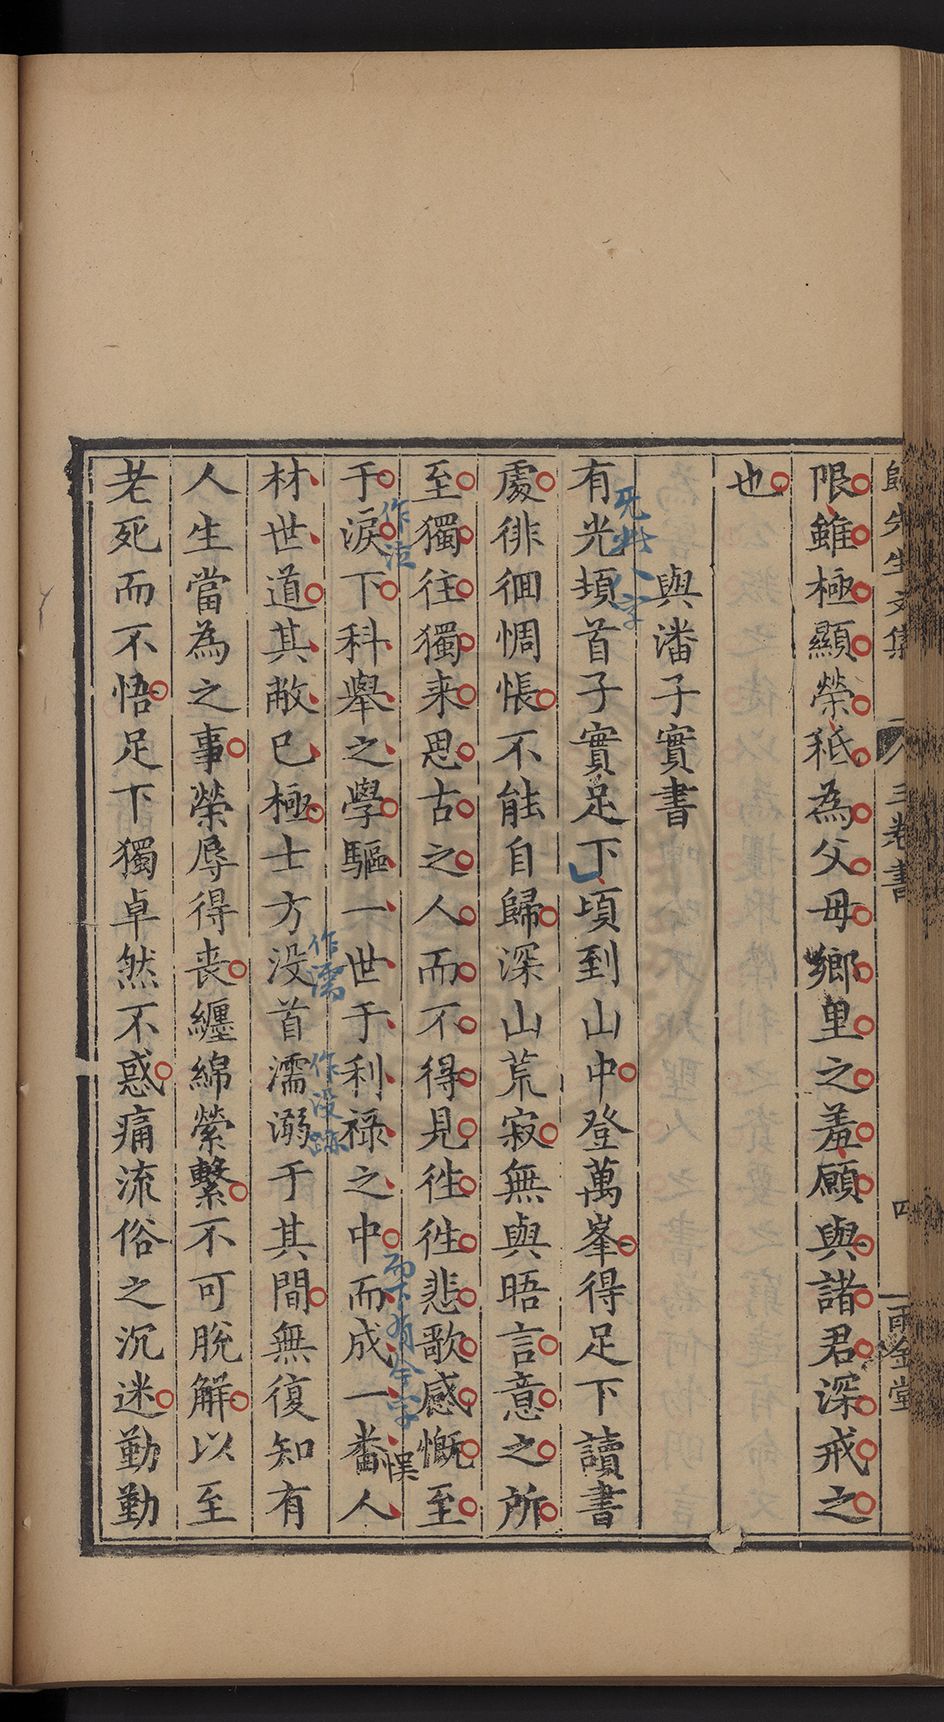 歸先生文集
三卷書
四
雨金堂
限雖極顯榮秪為父母鄉里之羞願與諸君深戒之
也
與潘子實書
有光頓首子實足下頃到山中登萬峯得足下讀書
無此八字
處徘徊惆悵不能自歸深山荒寂無與晤言意之所
至獨往獨来思古之人而不得見徃徃悲歌感慨至
于淚下科舉之學驅一世于利禄之中而成一畨人
作泣
而下有今字
悞
材世道其敝已極士方没首濡溺于其間無復知有
作濡
作没
人生當為之事榮辱得丧纏綿縈繫不可脫解以至
老死而不悟足下獨卓然不惑痛流俗之沉迷勤勤